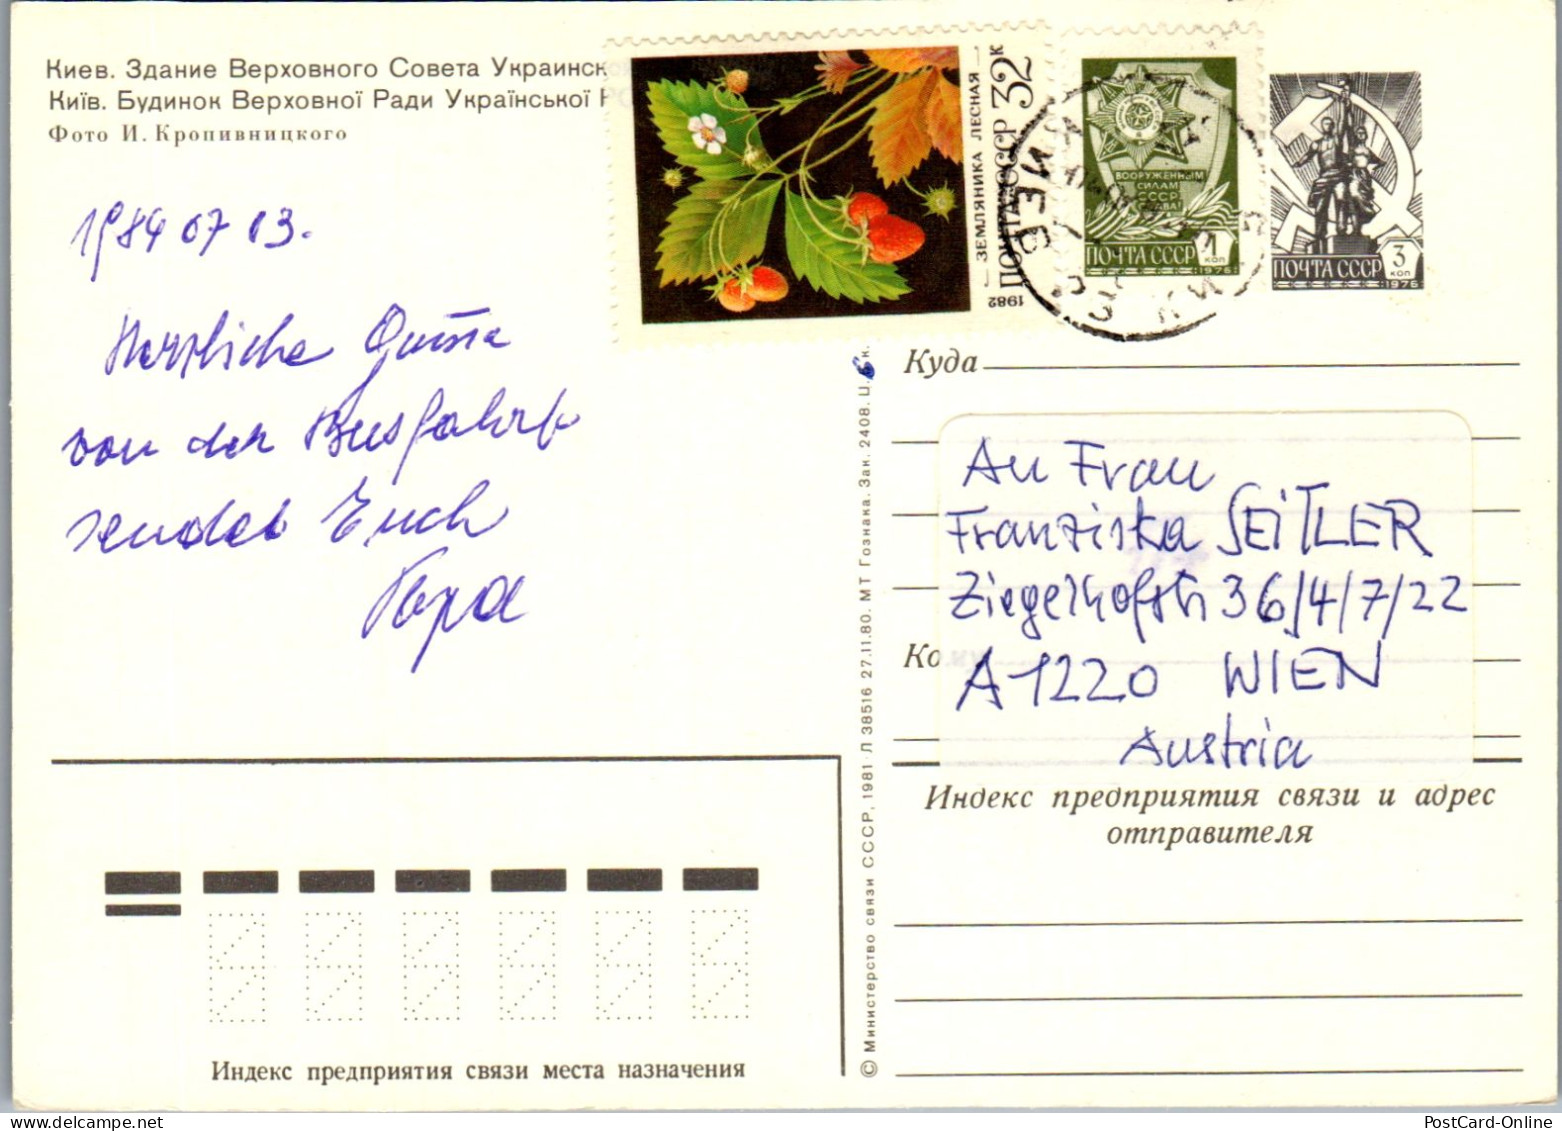 Киев. Здание Верховного Совета Украинск
Київ. Будинок Верховної Ради Української Р
Фото И. Кропивницкого
1984 07 13.
Herzliche Grüsse
von der Busfahrt
sendet Euch
Papa
ЗЕМЛЯНИКА ЛЕСНАЯ
ПОЧТА СССР 32 к
1982
ВООРУЖЕННЫМ
СИЛАМ
СССР
СЛАВА!
ПОЧТА СССР 1 КОП
1976
ПОЧТА СССР 3 КОП
1976
КИЕВ
Куда
An Frau
Franziska SEITLER
Ziegelhofstr 36/4/7/22
Ко
A 1220 WIEN
Austria
Индекс предприятия связи и адрес
отправителя
© Министерство связи СССР, 1981. Л 38516 27.11.80. МТ Гознака. Зак. 2408. Ц. к.
Индекс предприятия связи места назначения
PostCard-Online